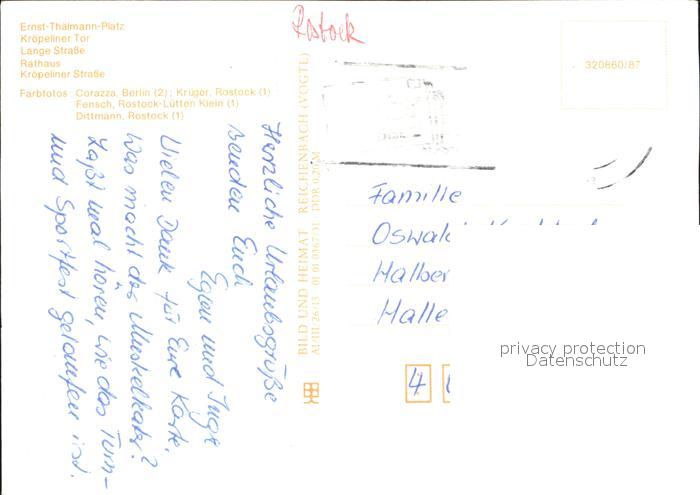 Ernst-Thälmann-Platz
Kröpeliner Tor
Lange Straße
Rathaus
Kröpeliner Straße
Farbfotos: Corazza, Berlin (2); Krüger, Rostock (1)
Fensch, Rostock-Lütten Klein (1)
Dittmann, Rostock (1)
Rostock
320860/87
Herzliche Urlaubsgrüße
senden Euch
Egon und Inge
Vielen Dank für Eure Karte.
Was macht der Muskelkater?
Laßt mal hören, wie das Turn-
und Sportfest gelaufen ist.
BILD UND HEIMAT REICHENBACH (VOGTL)
A1/III/26/13 01 01 0367/31 DDR 0,20 M
Familie
Oswald
Halber
Halle
4
privacy protection
Datenschutz